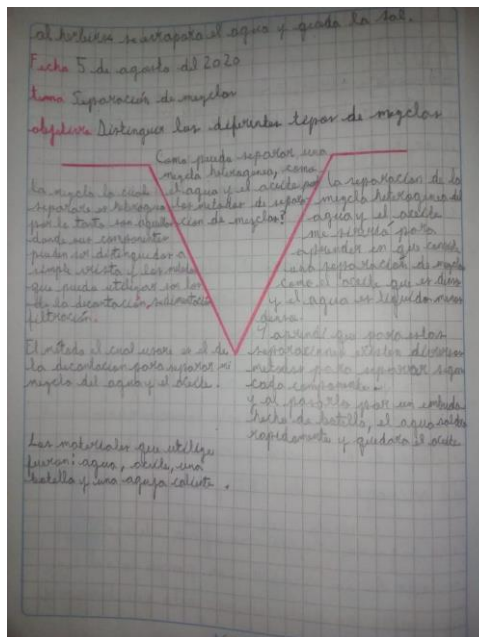 al hervirse se evapora el agua y queda la sal.
Fecha 5 de agosto del 2020
tema Separación de mezclas
objetivo Distinguir los diferentes tipos de mezclas
Como puedo separar una
mezcla heterogenia, como
el agua y el aceite por
los metodos de separa-
cion de mezclas?
La mezcla la cual
separare es
por lo tanto son aquellas
donde sus componentes
pueden ser distinguidos a
simple vista y los metodos
que puedo utilizar son los
de la decantación, sedimentación
filtración.
El método el cual usare es el de
la decantacion para separar mi
mezcla del agua y el aceite.
Los materiales que utilize
fueron: agua, aceite, una
botella y una aguja caliente.
La separacion de la
mezcla heterogenia del
agua y el aceite
me servira para
aprender en que consiste
una separación de mezclas
como el aceite que es denso
y el agua es liquido menos
densa.
Y aprendi que para estas
separaciones existen diversos
metodos para separar segun
cada componente.
y al pasarlo por un embudo
hecho de botella, el agua saldra
rapidamente y quedara el aceite